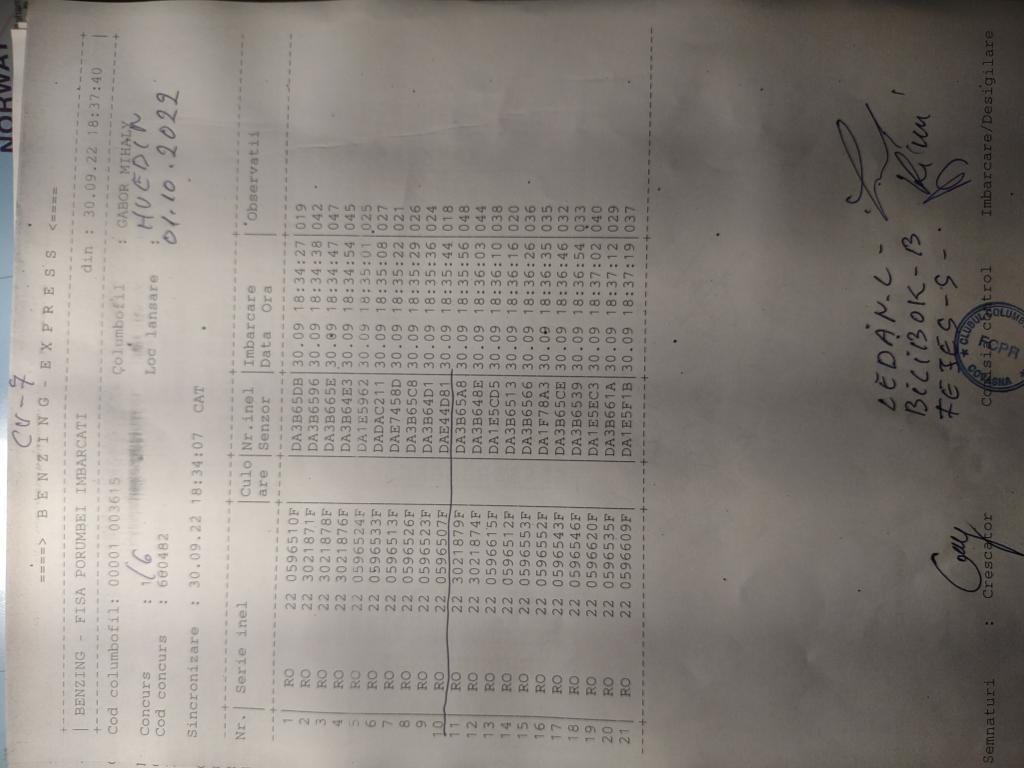 NORWAY
CV-7
====> B E N Z I N G - E X P R E S S <====
| BENZING - FISA PORUMBEI IMBARCATI din : 30.09.22 18:37:40 |
Cod columbofil: 00001 003615 Columbofil : GABOR MIHALY
Concurs : 16 Loc lansare : HUEDIN
Cod concurs : 660482 01.10.2022
Sincronizare : 30.09.22 18:34:07 CAT
Nr.| Serie inel |Culo|Nr.inel |Imbarcare |Observatii
are Senzor Data Ora
1 RO 22 0596510F DA3B65DB 30.09 18:34:27 019
2 RO 22 3021871F DA3B6596 30.09 18:34:38 042
3 RO 22 3021878F DA3B665E 30.09 18:34:47 047
4 RO 22 3021876F DA3B64E3 30.09 18:34:54 045
5 RO 22 0596524F DA1E5962 30.09 18:35:01 025
6 RO 22 0596533F DADAC211 30.09 18:35:08 027
7 RO 22 0596513F DAE7458D 30.09 18:35:22 021
8 RO 22 0596526F DA3B65C8 30.09 18:35:29 026
9 RO 22 0596523F DA3B64D1 30.09 18:35:36 024
10 RO 22 0596507F DAE44D81 30.09 18:35:44 018
11 RO 22 3021879F DA3B65A8 30.09 18:35:56 048
12 RO 22 3021874F DA3B648E 30.09 18:36:03 044
13 RO 22 0596615F DA1E5CD5 30.09 18:36:10 038
14 RO 22 0596512F DA3B6513 30.09 18:36:16 020
15 RO 22 0596553F DA3B6566 30.09 18:36:26 036
16 RO 22 0596552F DA1F78A3 30.09 18:36:35 035
17 RO 22 0596543F DA3B65CE 30.09 18:36:46 032
18 RO 22 0596546F DA3B6539 30.09 18:36:54 033
19 RO 22 0596620F DA1E5EC3 30.09 18:37:02 040
20 RO 22 0596535F DA3B661A 30.09 18:37:12 029
21 RO 22 0596609F DA1EEF1B 30.09 18:37:19 037
LEDÁN-L-
BiCiBOK-B
FEJES-S-
CLUBUL COLUMB
FCPR
COVASNA
Semnaturi : Crescator Comsia control Imbarcare/Desigilare